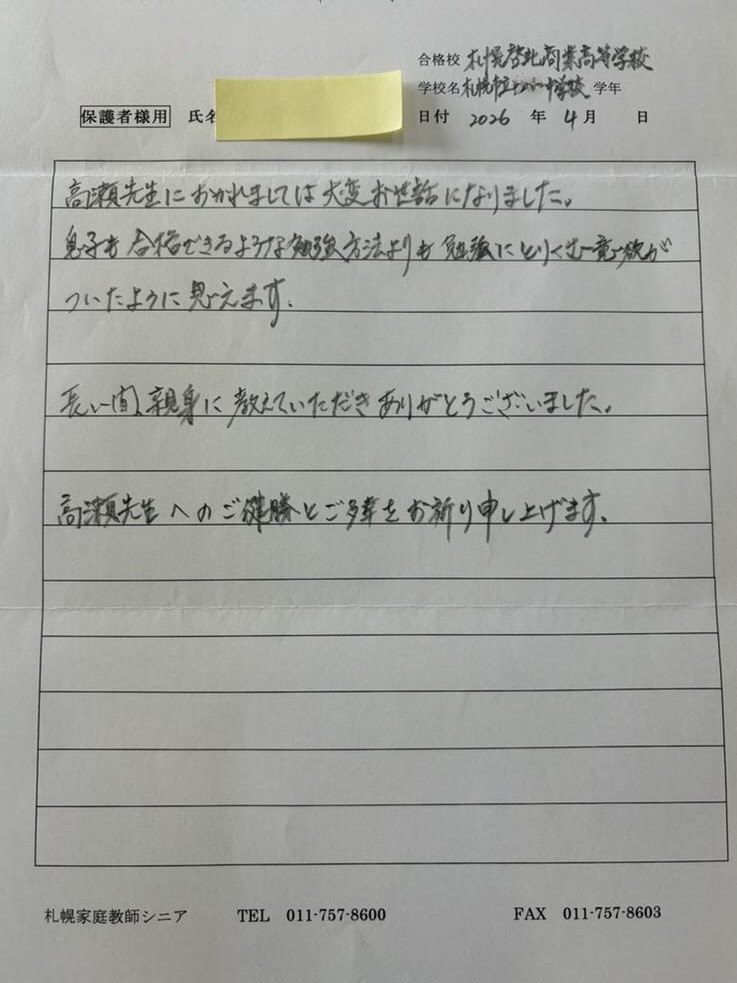 合格校 札幌啓北商業高等学校
学校名 札幌市立 中学校 学年
保護者様用 氏名
日付 2026 年 4 月 日
高瀬先生におかれましては大変お世話になりました。
息子も合格できるような勉強方法よりも勉強にとりくむ意欲が
ついたように思えます。
長い間、親身に教えていただきありがとうございました。
高瀬先生へのご健勝とご多幸をお祈り申し上げます。
札幌家庭教師シニア TEL 011-757-8600 FAX 011-757-8603